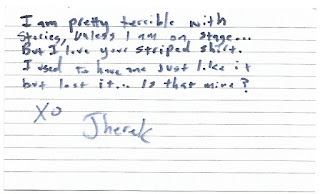 I am pretty terrible with
Stories, unless I am on stage...
But I love your striped shirt.
I used to have one just like it
but lost it... Is that mine?
XO
Jherek